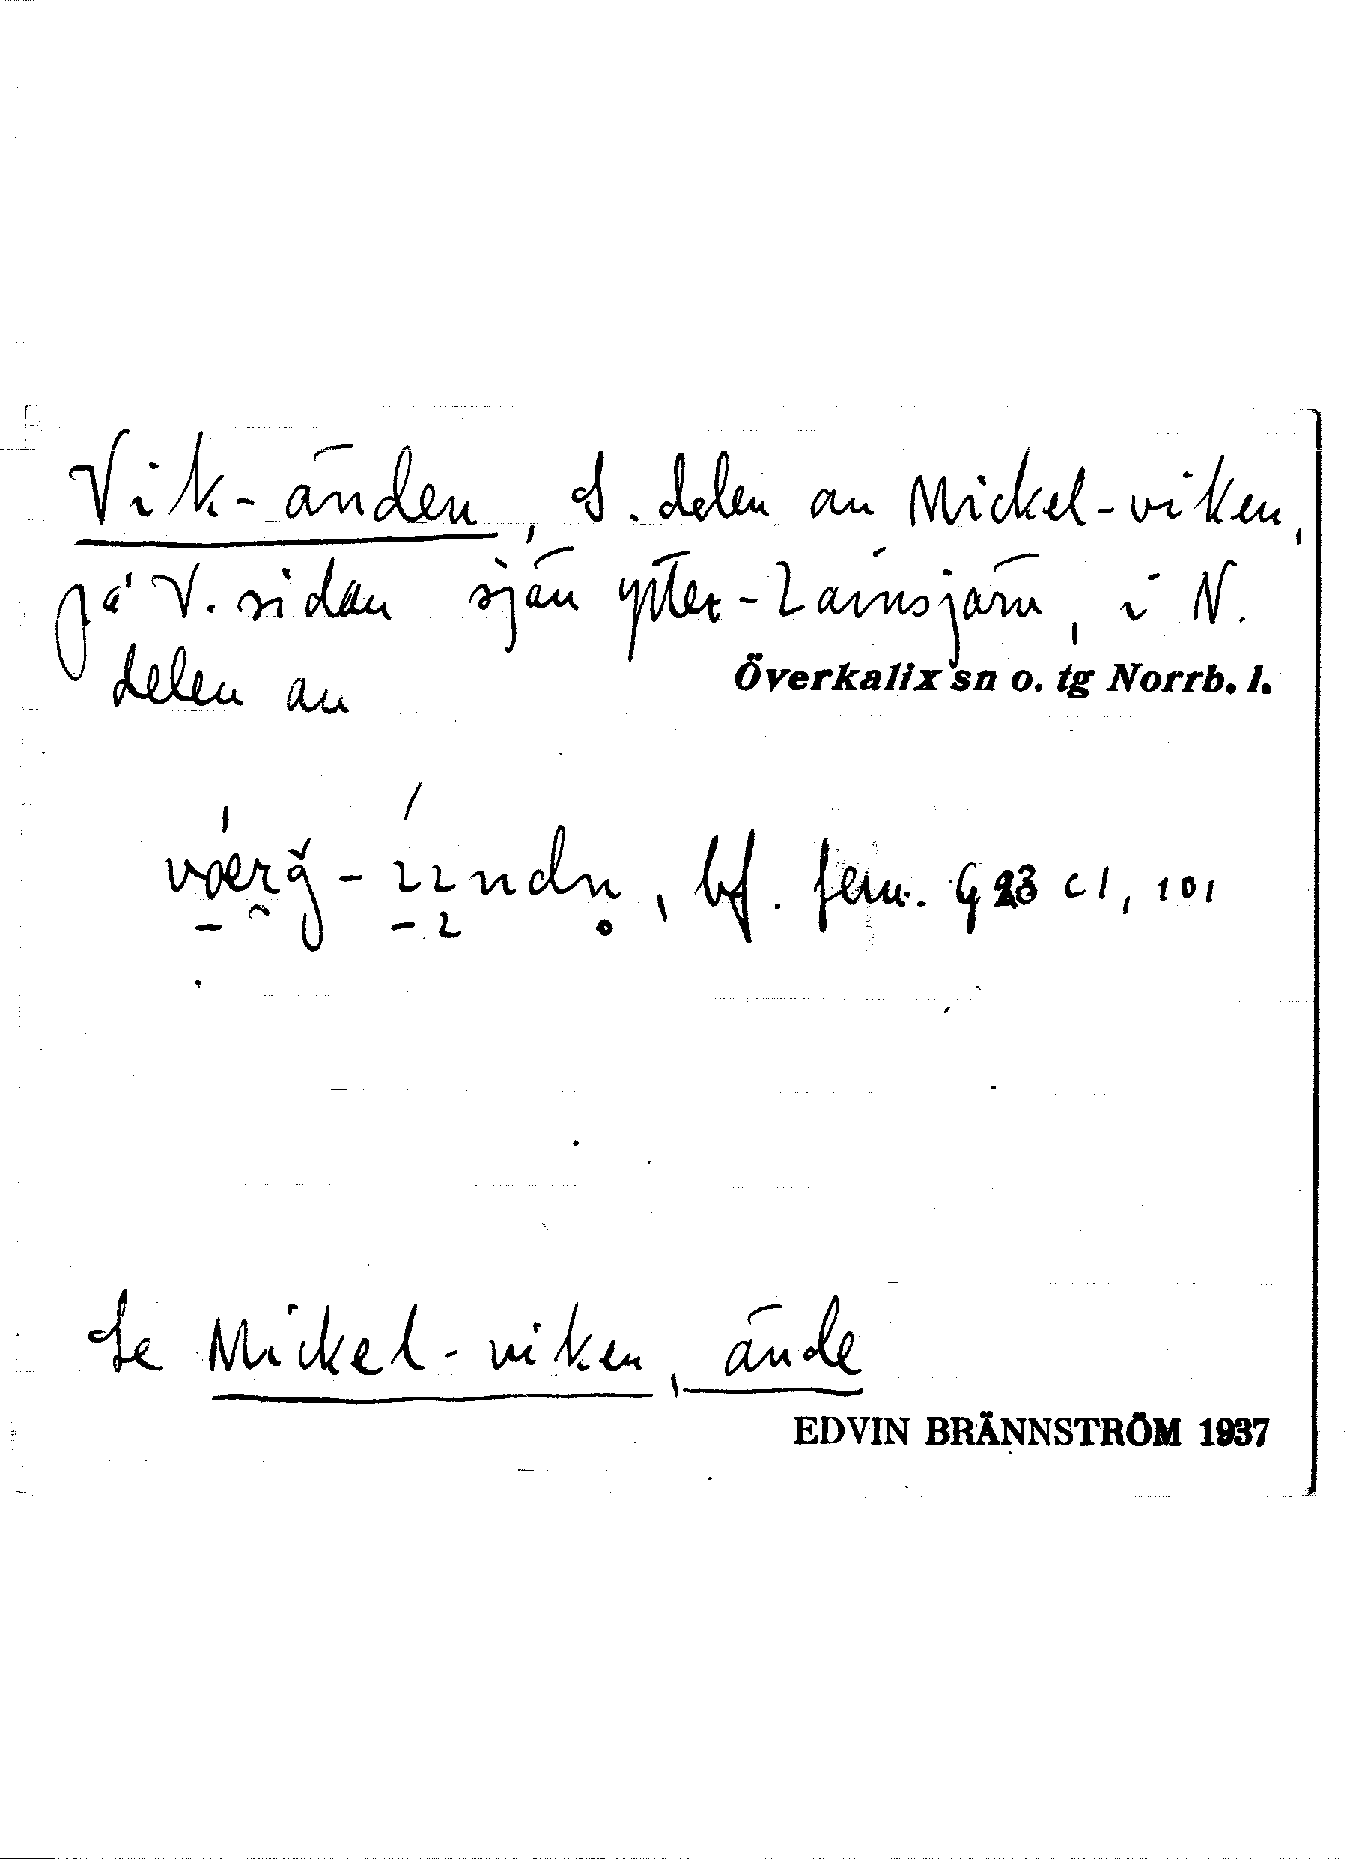 Vik-änden, S. delen av Mickel-viken,
på V. sidan sjön Ytter-Lainsjärv, i N.
delen av Överkalix sn o. tg Norrb. l.
bf. fem. G 23 c 1, 101
Se Mickel-viken, ände
EDVIN BRÄNNSTRÖM 1937